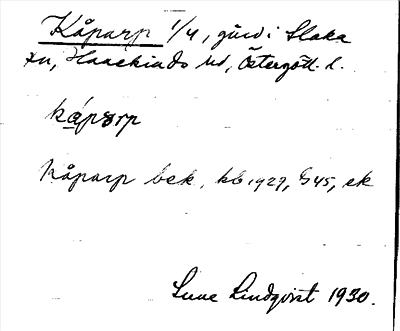 Kåparp 1/4, gård i Slaka
sn, Hanekinds hd, Östergötl. l.
kåparp
Kåparp bek. kb 1927, G45, ek
Sune Lindqvist 1930.